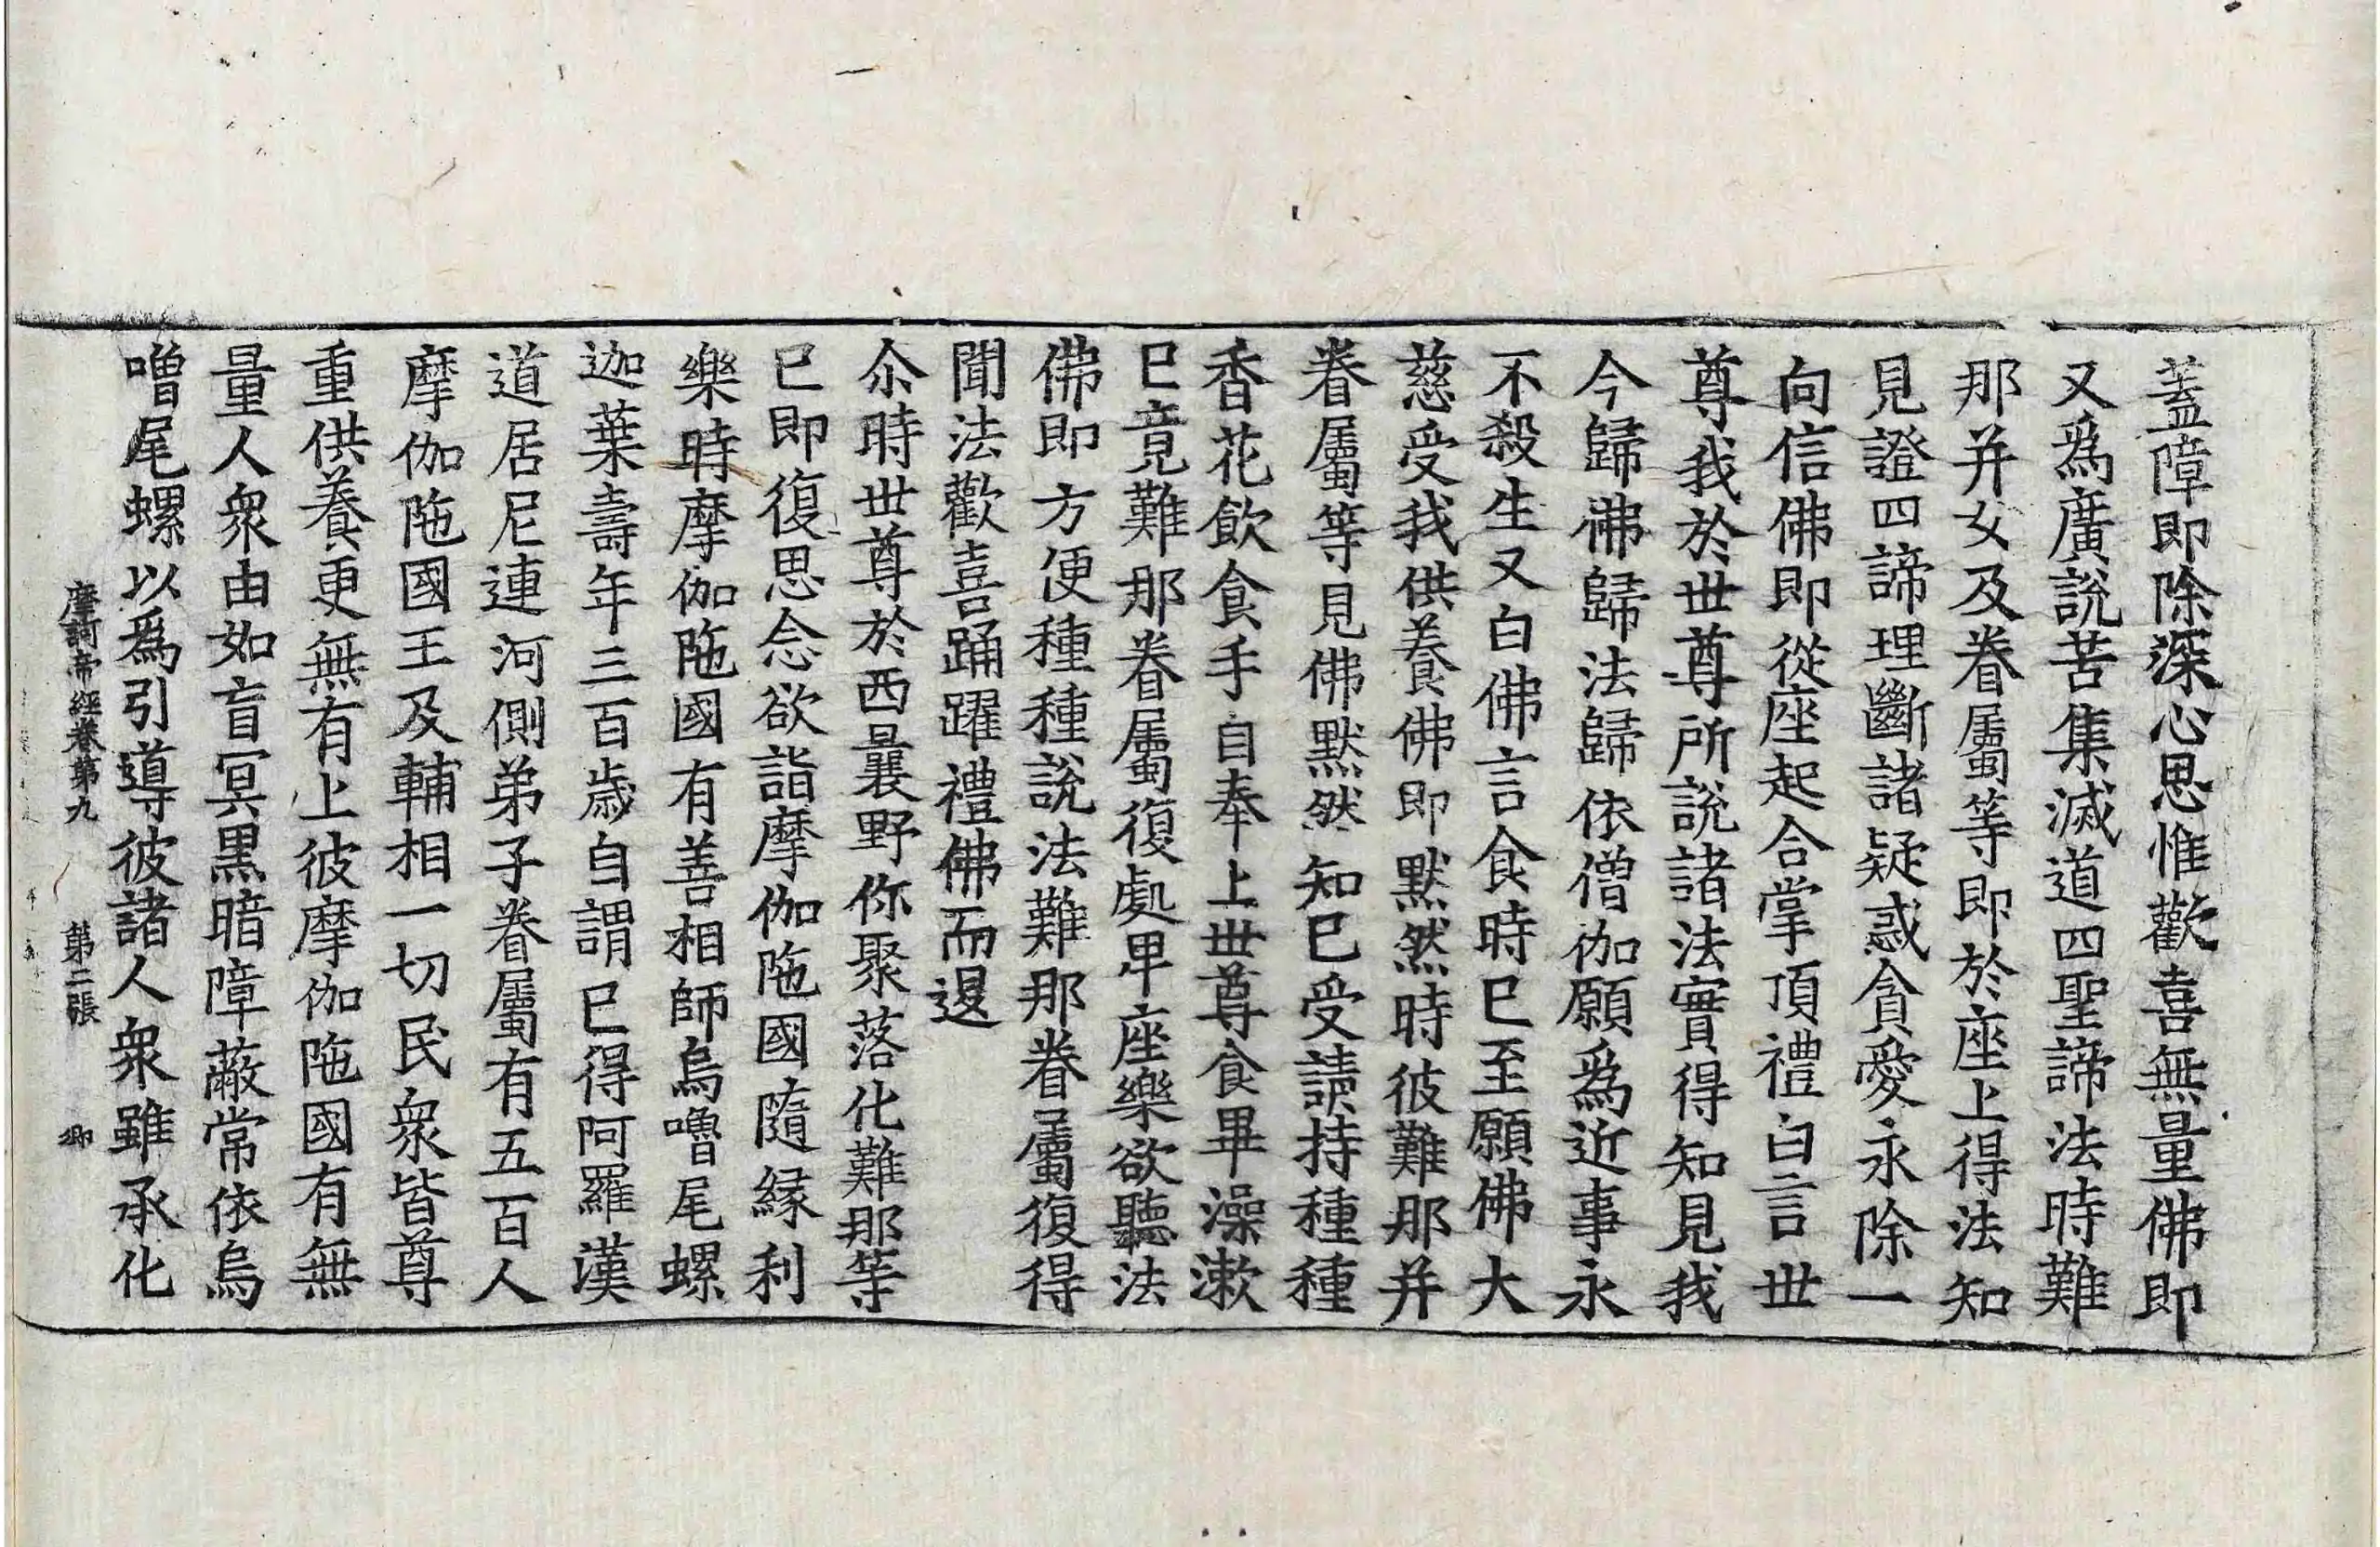 蓋障即除深心思惟歡喜無量佛即
又爲廣說苦集滅道四聖諦法時難
那并女及眷屬等即於座上得法知
見證四諦理斷諸疑惑貪愛永除一
向信佛即從座起合掌頂禮白言世
尊我於世尊所說諸法實得知見我
今歸佛歸法歸依僧伽願爲近事永
不殺生又白佛言食時巳至願佛大
慈受我供養佛即默然時彼難那并
眷屬等見佛默然知巳受請持種種
香花飲食手自奉上世尊食畢澡漱
巳竟難那眷屬復處卑座樂欲聽法
佛即方便種種說法難那眷屬復得
聞法歡喜踊躍禮佛而退
尒時世尊於西曩野你聚落化難那等
巳即復思念欲詣摩伽陁國隨緣利
樂時摩伽陁國有善相師烏嚕尾螺
迦葉壽年三百歲自謂巳得阿羅漢
道居尼連河側弟子眷屬有五百人
摩伽陁國王及輔相一切民衆皆尊
重供養更無有上彼摩伽陁國有無
量人衆由如盲冥黒暗障蔽常依烏
嚕尾螺以爲引導彼諸人衆雖承化
摩訶帝經卷第九 第二張 卿